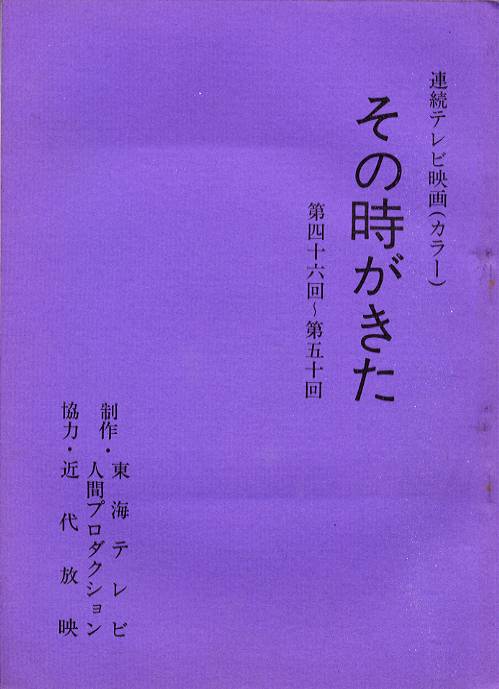 連続テレビ映画(カラー)
その時がきた
第四十六回~第五十回
制作・東海テレビ
人間プロダクション
協力・近代放映